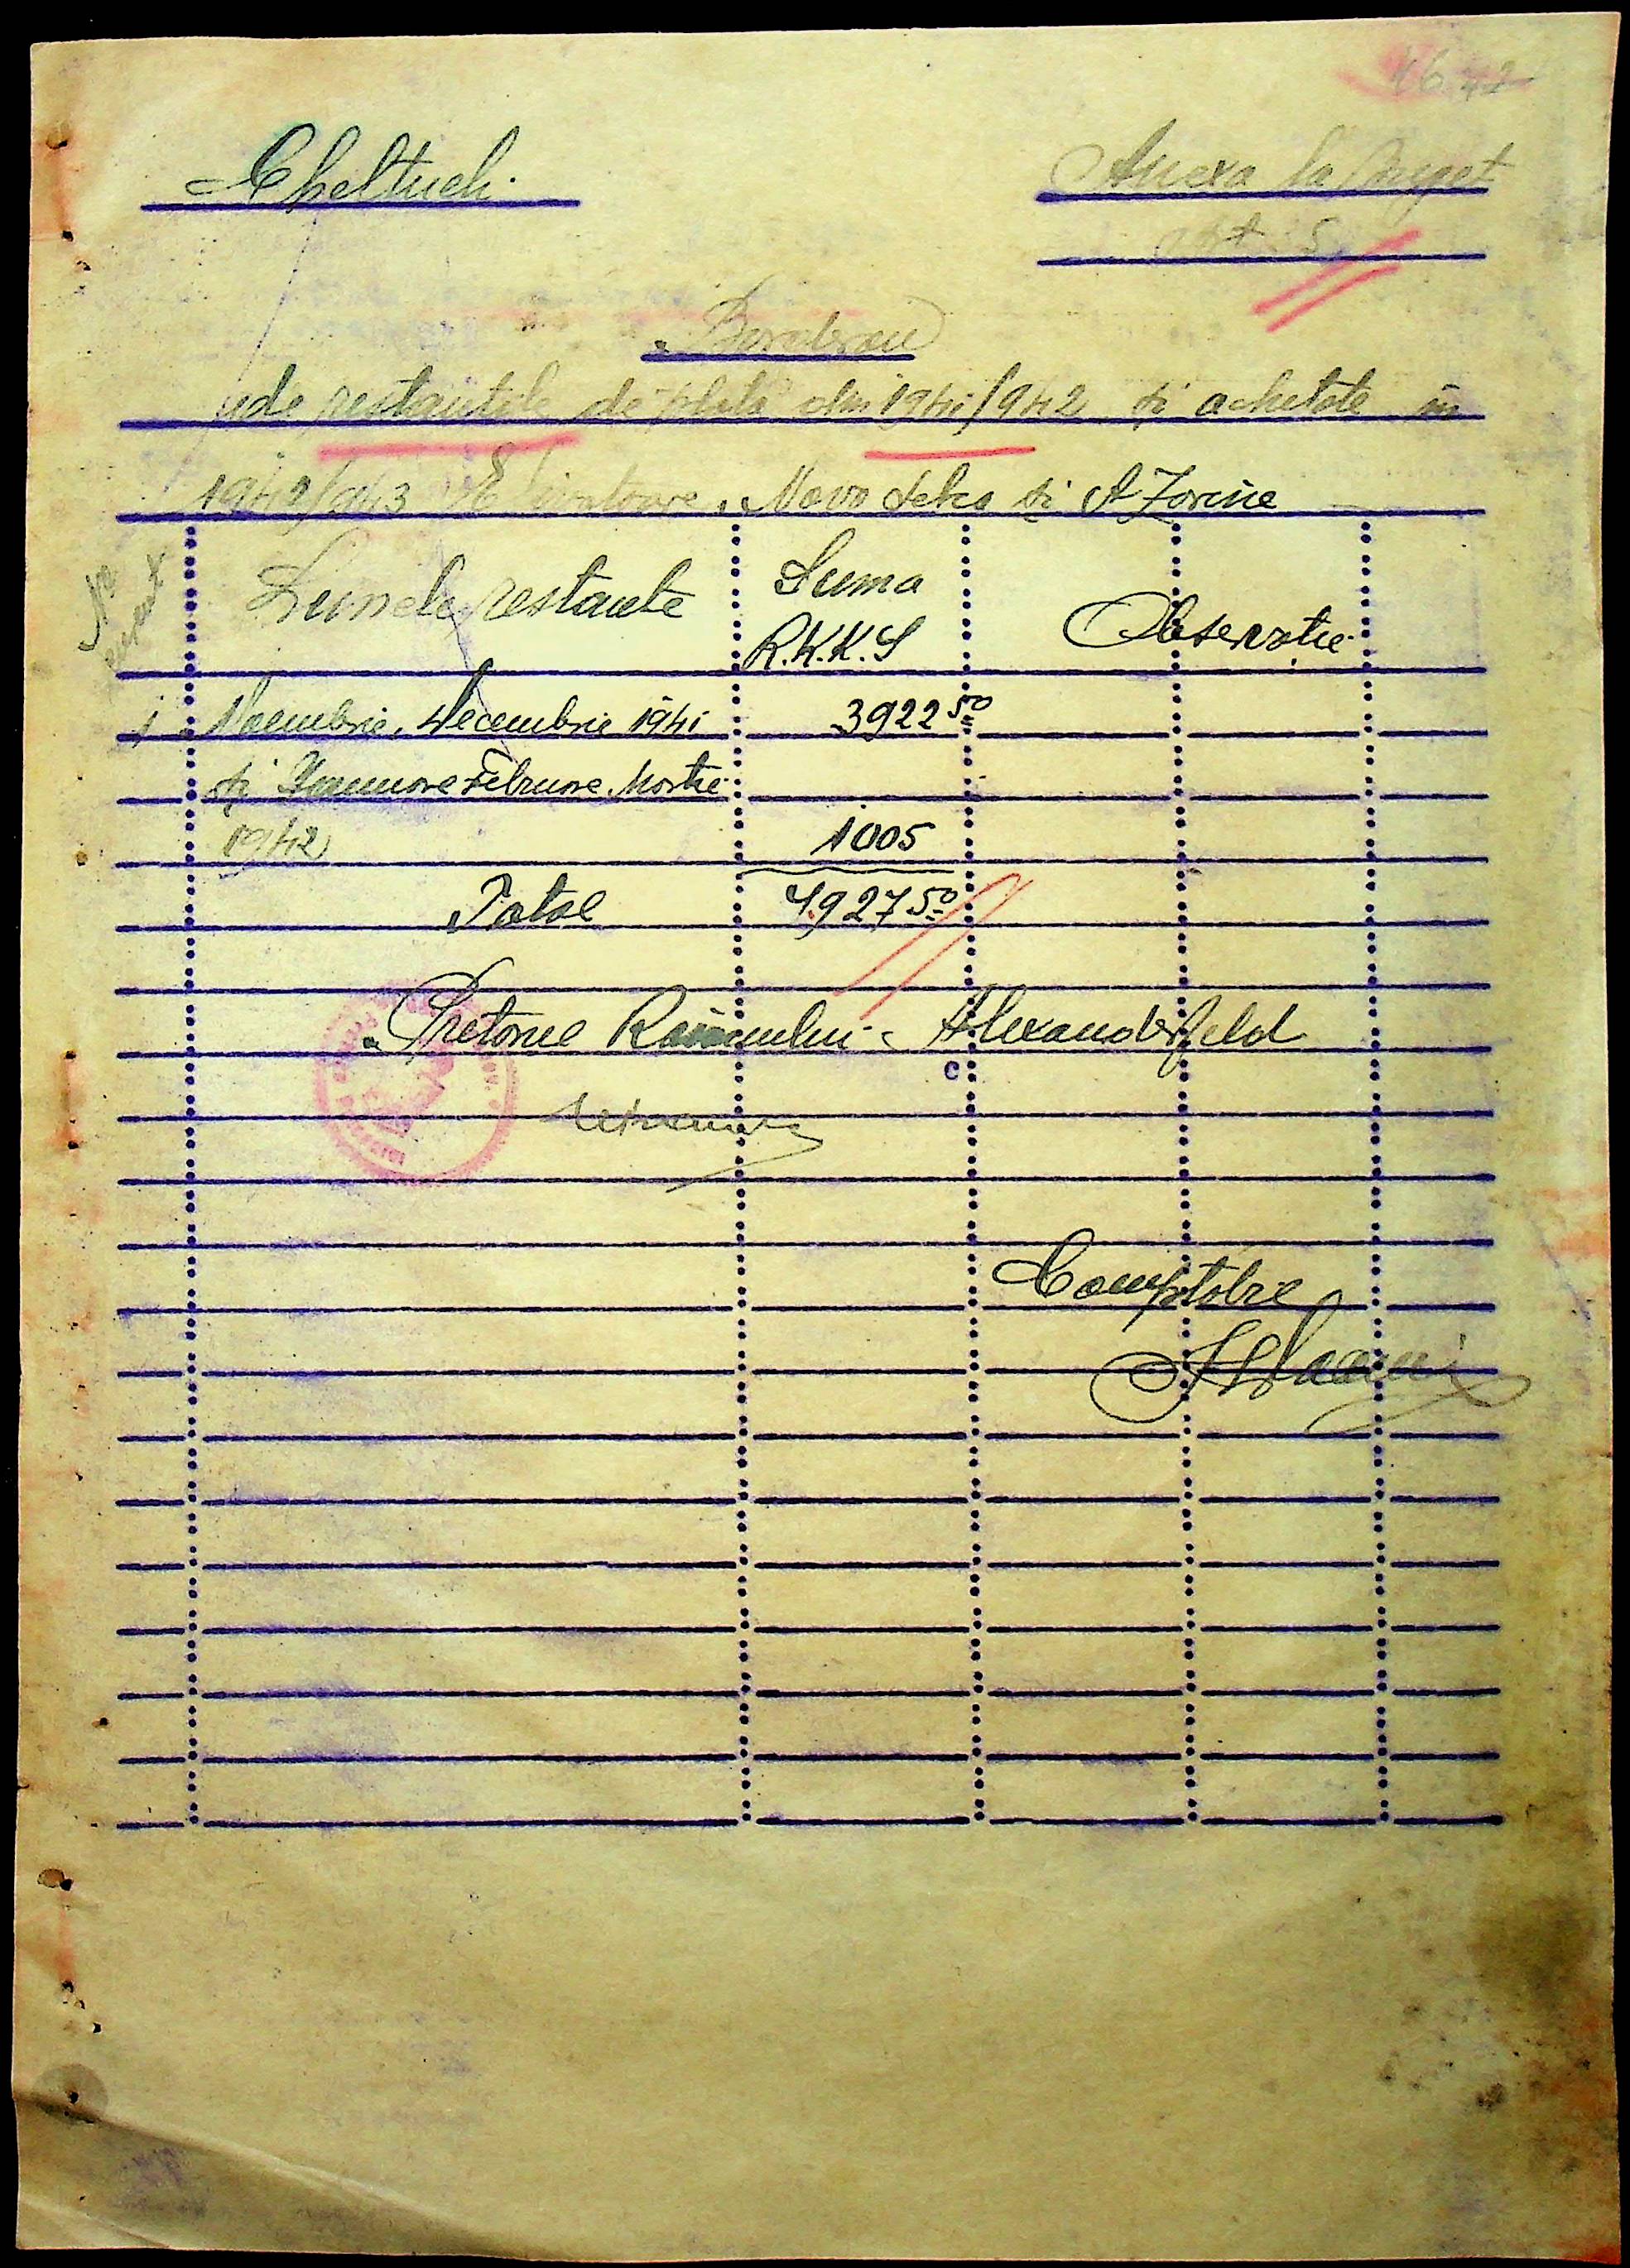 Cheltueli
Anexa la Buget
Art. 5
Borderou
de restantele de plata din 1941/942 și achetate în
1942/943 Novo Selca și A Zorine
No
curent
Lunele restante
Suma
R.K.K.S
Observație
1 Noembrie, Decembrie 1941 3922 50
și Ianuare Februare Martie
1942 1005
Total 4.927 50
Pretorul Raionului Alexanderfeld
Comptabil